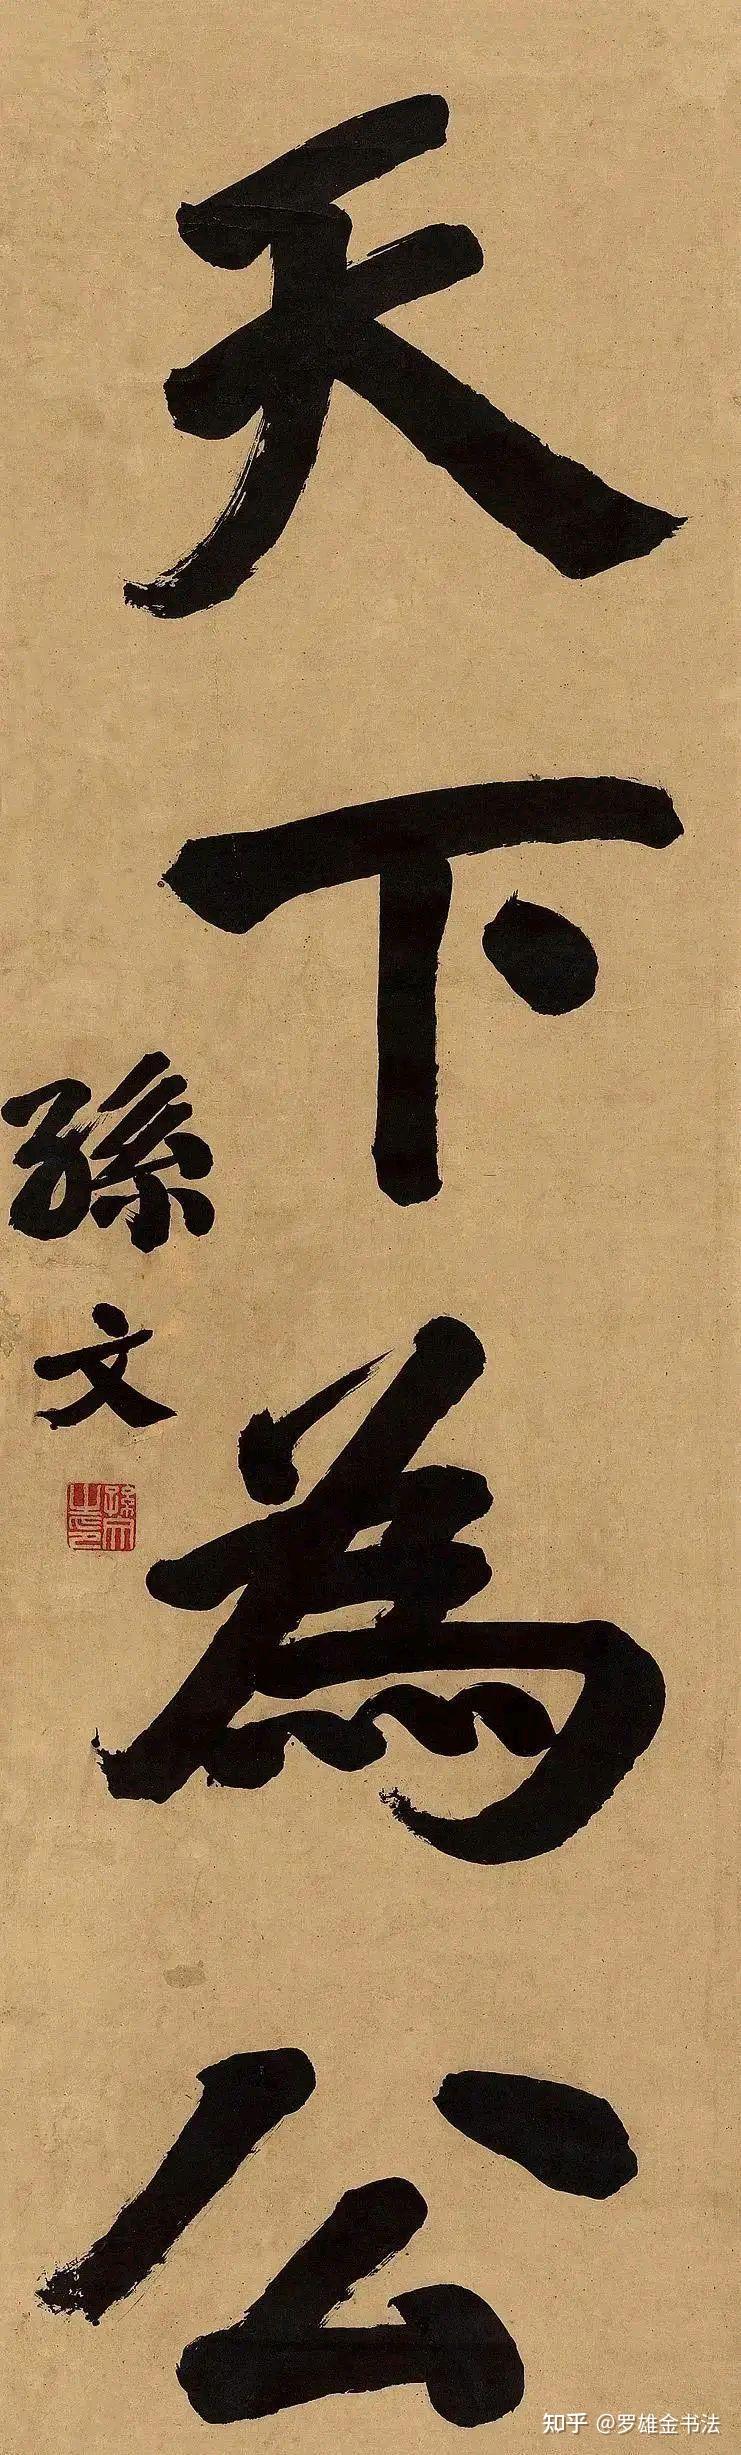 天下為公
孫文
孫文之印
知乎 @罗雄金书法